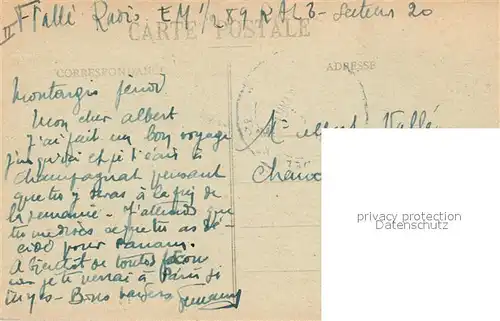 Vallé Radio EM 1/289 RALT - Secteur 20
CARTE POSTALE
CORRESPONDANCE
ADRESSE
Montargis jeudi
Mon cher Albert
J'ai fait un bon voyage
jusqu'ici et je t'écris à
Champagnat pensant
que tu y seras à la fin de
la semaine - J'attends que
tu me dises ce que tu as dé-
cidé pour
A bientôt de toutes façons
car je te verrai à Paris si
- Bons baisers
Mr Albert Vallé
privacy protection
Samles.com